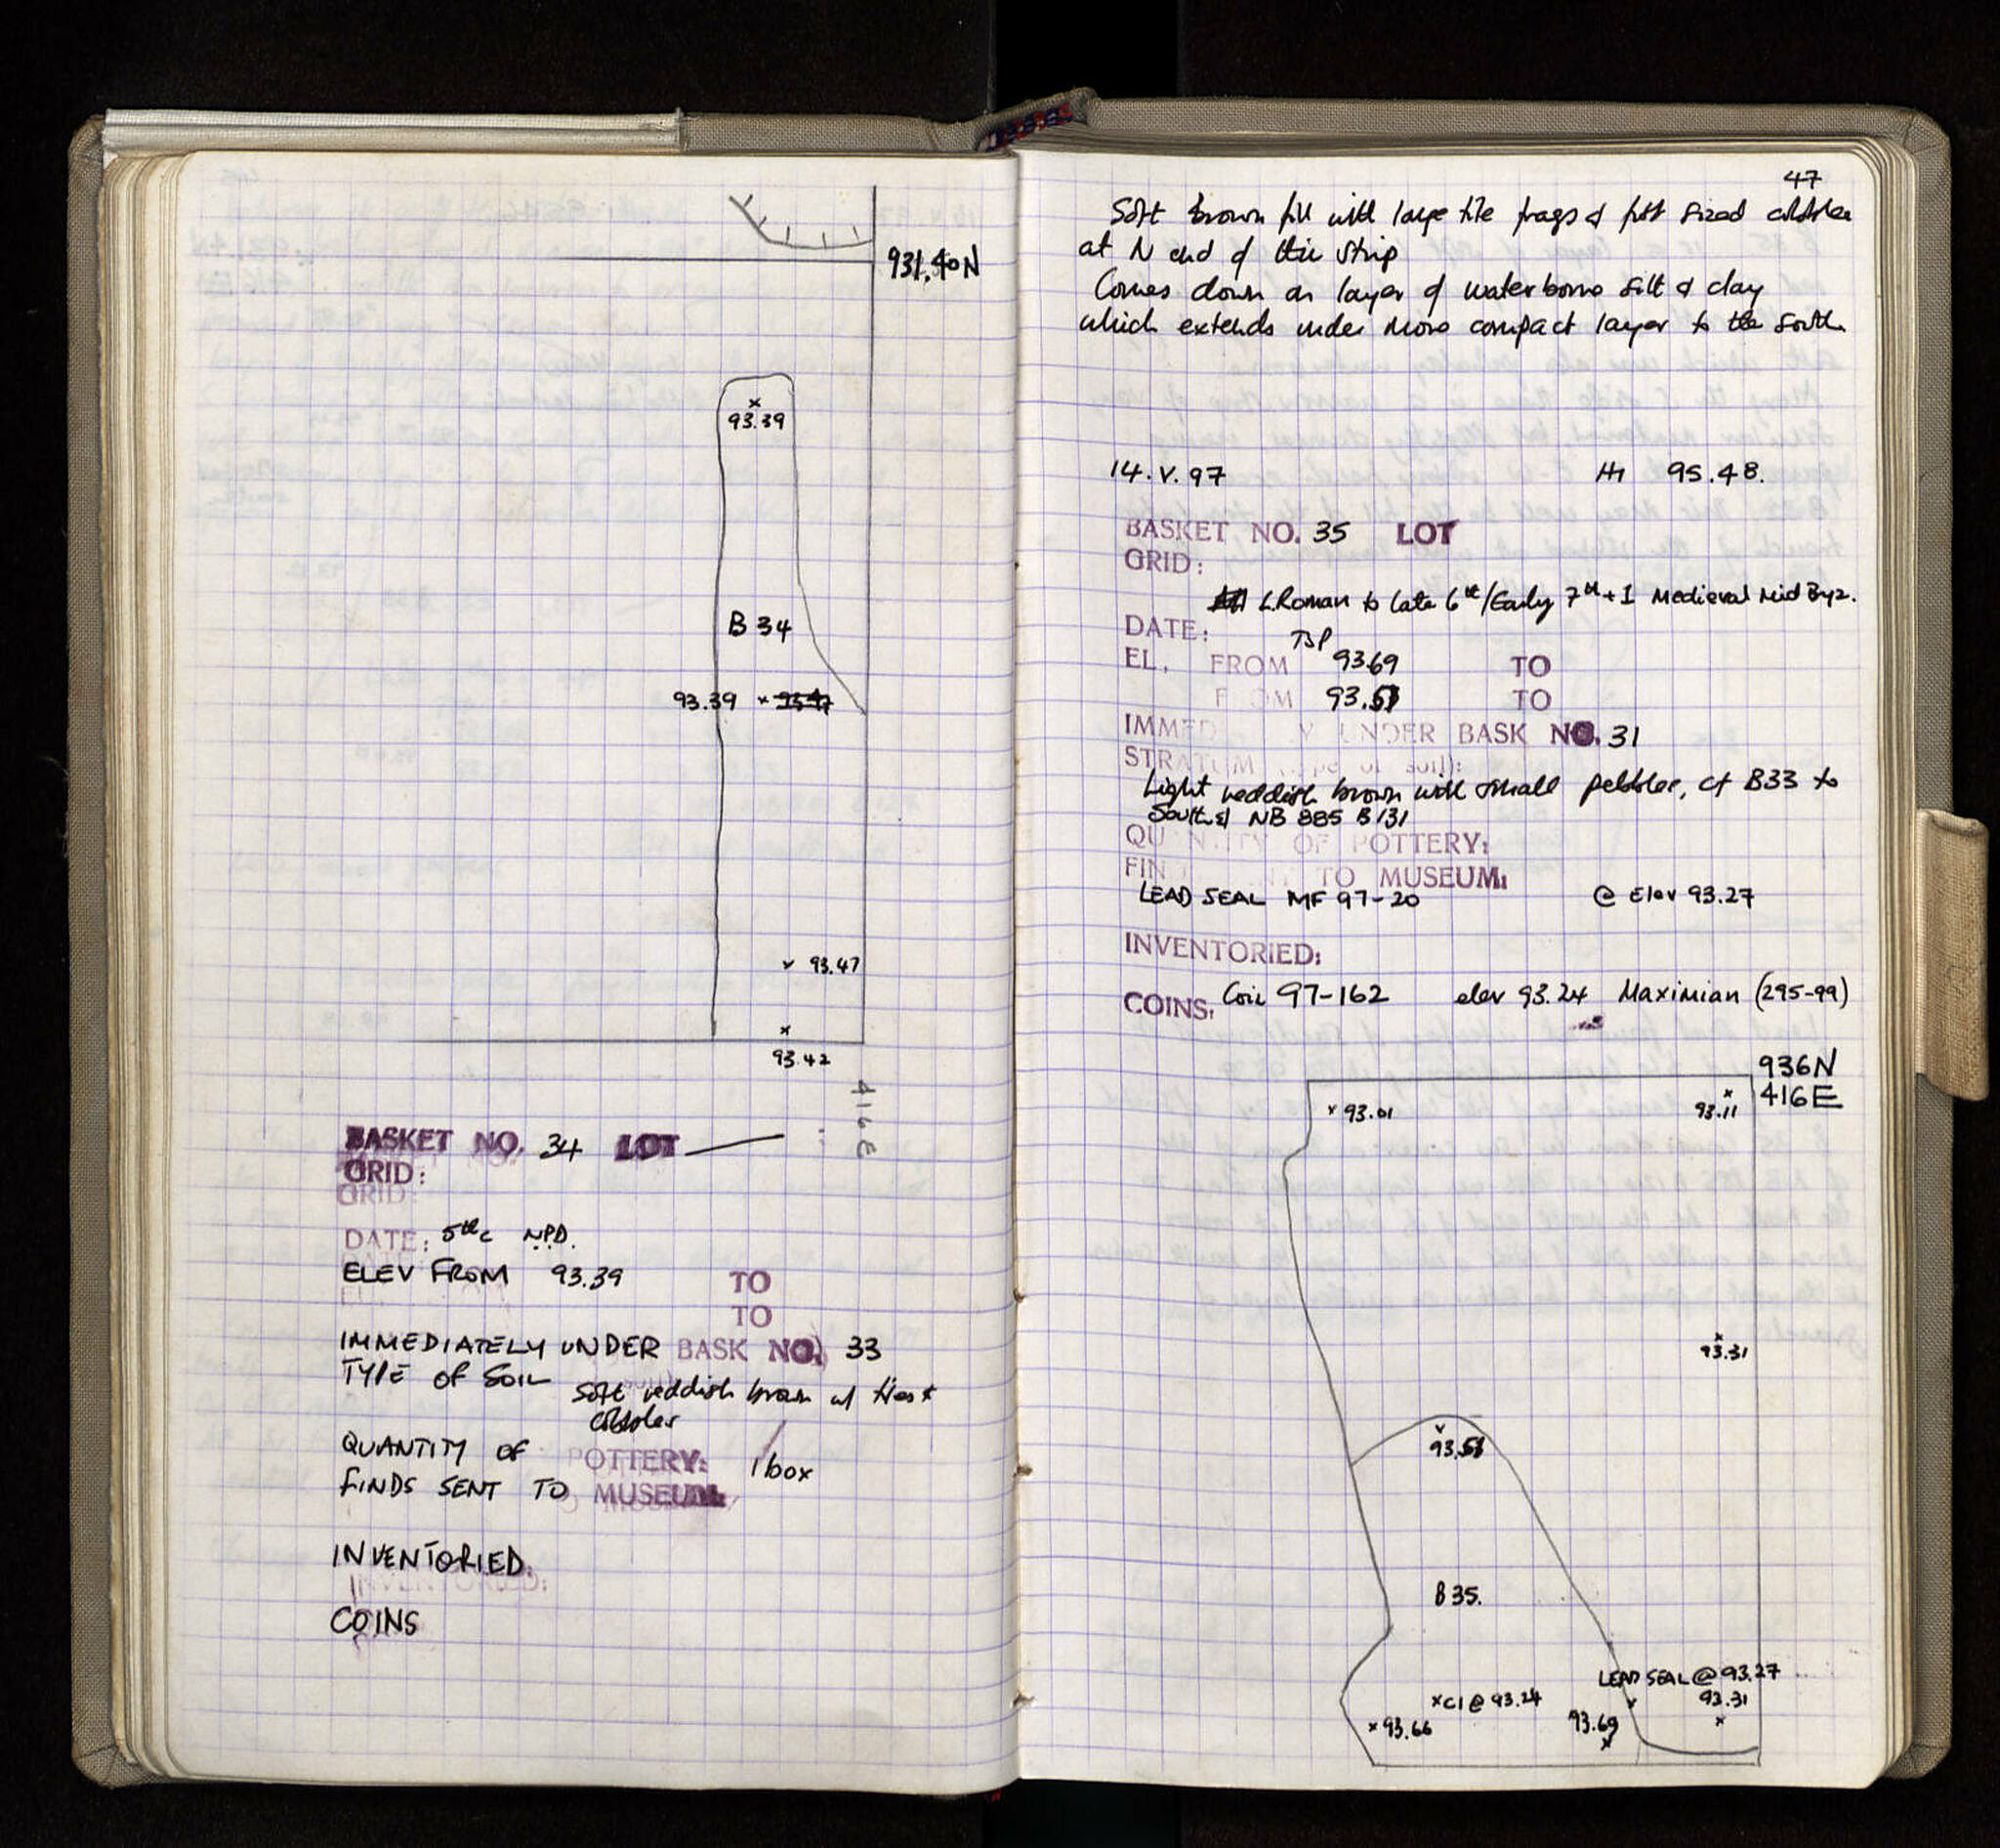 931.40N
93.39
B 34
93.39 93.47
93.47
93.42
416E
BASKET NO. 34 LOT —
GRID:
GRID:
DATE: 5th c NPD.
ELEV FROM 93.39 TO
TO
IMMEDIATELY UNDER BASK NO. 33
TYPE OF SOIL soft reddish brown w/ tiles &
cobbles
QUANTITY OF POTTERY: 1 box
FINDS SENT TO MUSEUM:
INVENTORIED:
COINS
47
Soft brown fill with large tile frags & fist sized cobbles
at N end of this strip
Comes down on layer of waterborne silt & clay
which extends under more compact layer to the south.
14.V.97 HI 95.48.
BASKET NO. 35 LOT
GRID:
L Roman to late 6th/Early 7th + 1 Medieval Mid Byz.
DATE: TSP
EL. FROM 93.69 TO
FROM 93.51 TO
IMMED Y UNDER BASK NO. 31
STRATUM (type of soil):
Light reddish brown with small pebbles, cf B33 to
South & NB 885 B131
QU NTITY OF POTTERY:
FIN NT TO MUSEUM:
LEAD SEAL MF 97-20 @ Elev 93.27
INVENTORIED:
COINS: Coin 97-162 elev 93.24 Maximian (295-99)
936N
416E
93.01 93.11
93.31
93.51
B 35.
LEAD SEAL @ 93.27
C1 @ 93.24 93.31
93.66 93.69